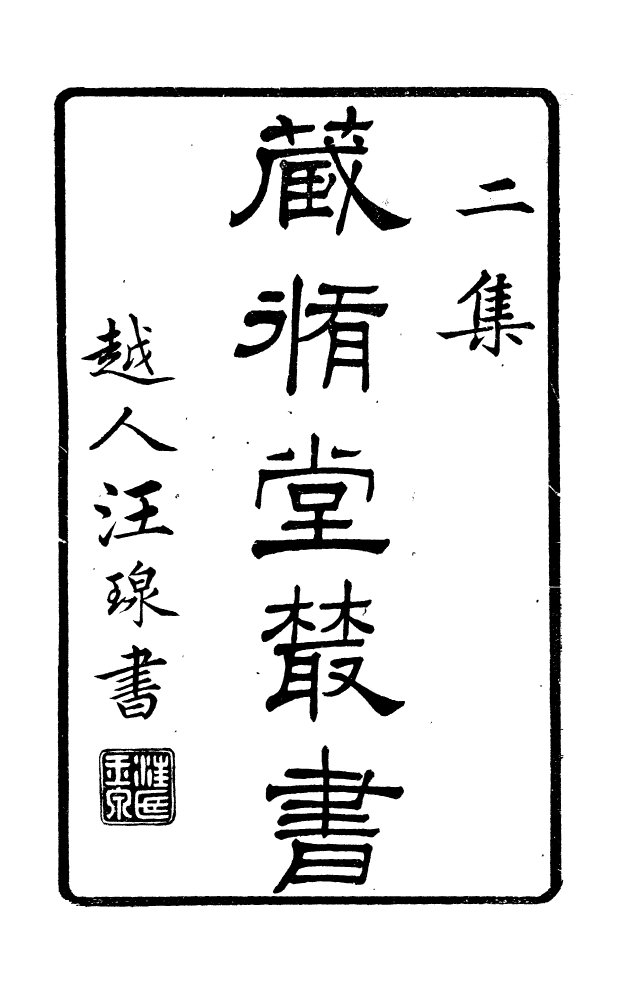 二集
藏脩堂叢書
越人汪瑔書
汪氏玉泉